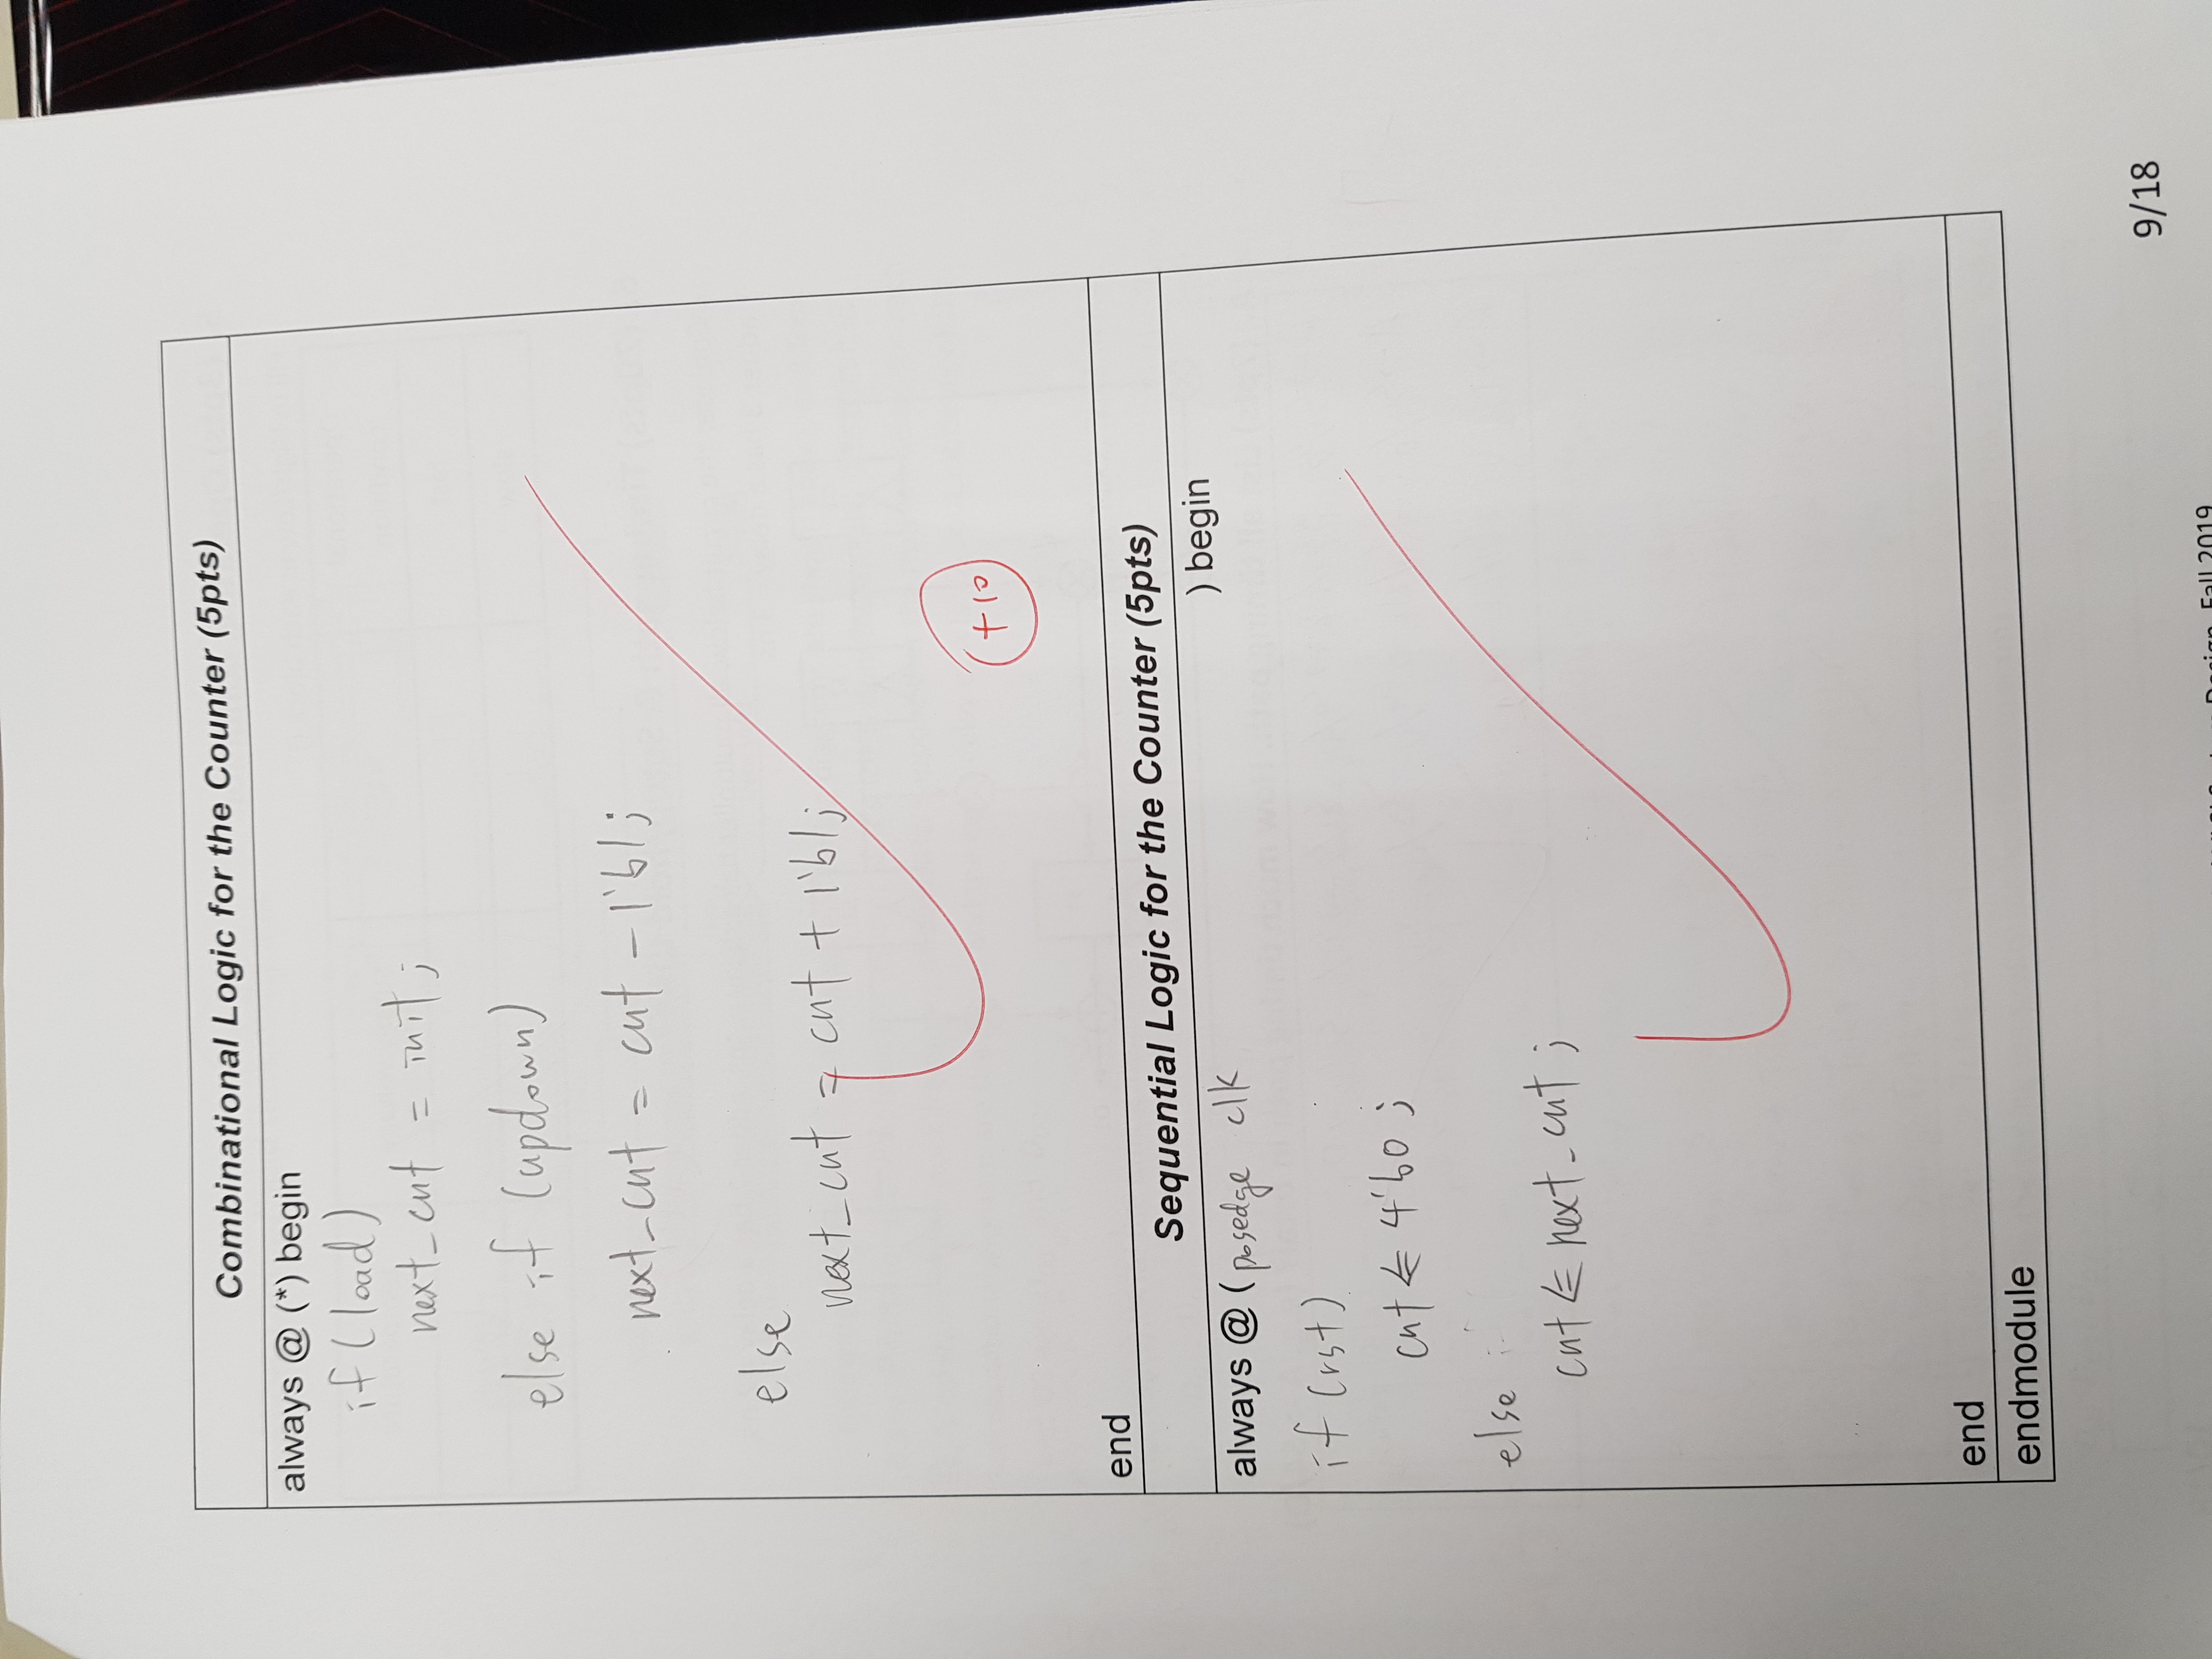 Combinational Logic for the Counter (5pts)
always @ (*) begin
if (load)
next_cnt = init;
else if (updown)
next_cnt = cnt - 1'b1;
else
next_cnt = cnt + 1'b1;
+10
end
Sequential Logic for the Counter (5pts)
always @ (posedge clk ) begin
if (rst)
cnt <= 4'b0;
else
cnt <= next_cnt;
end
endmodule
9/18
Design, Fall 2019